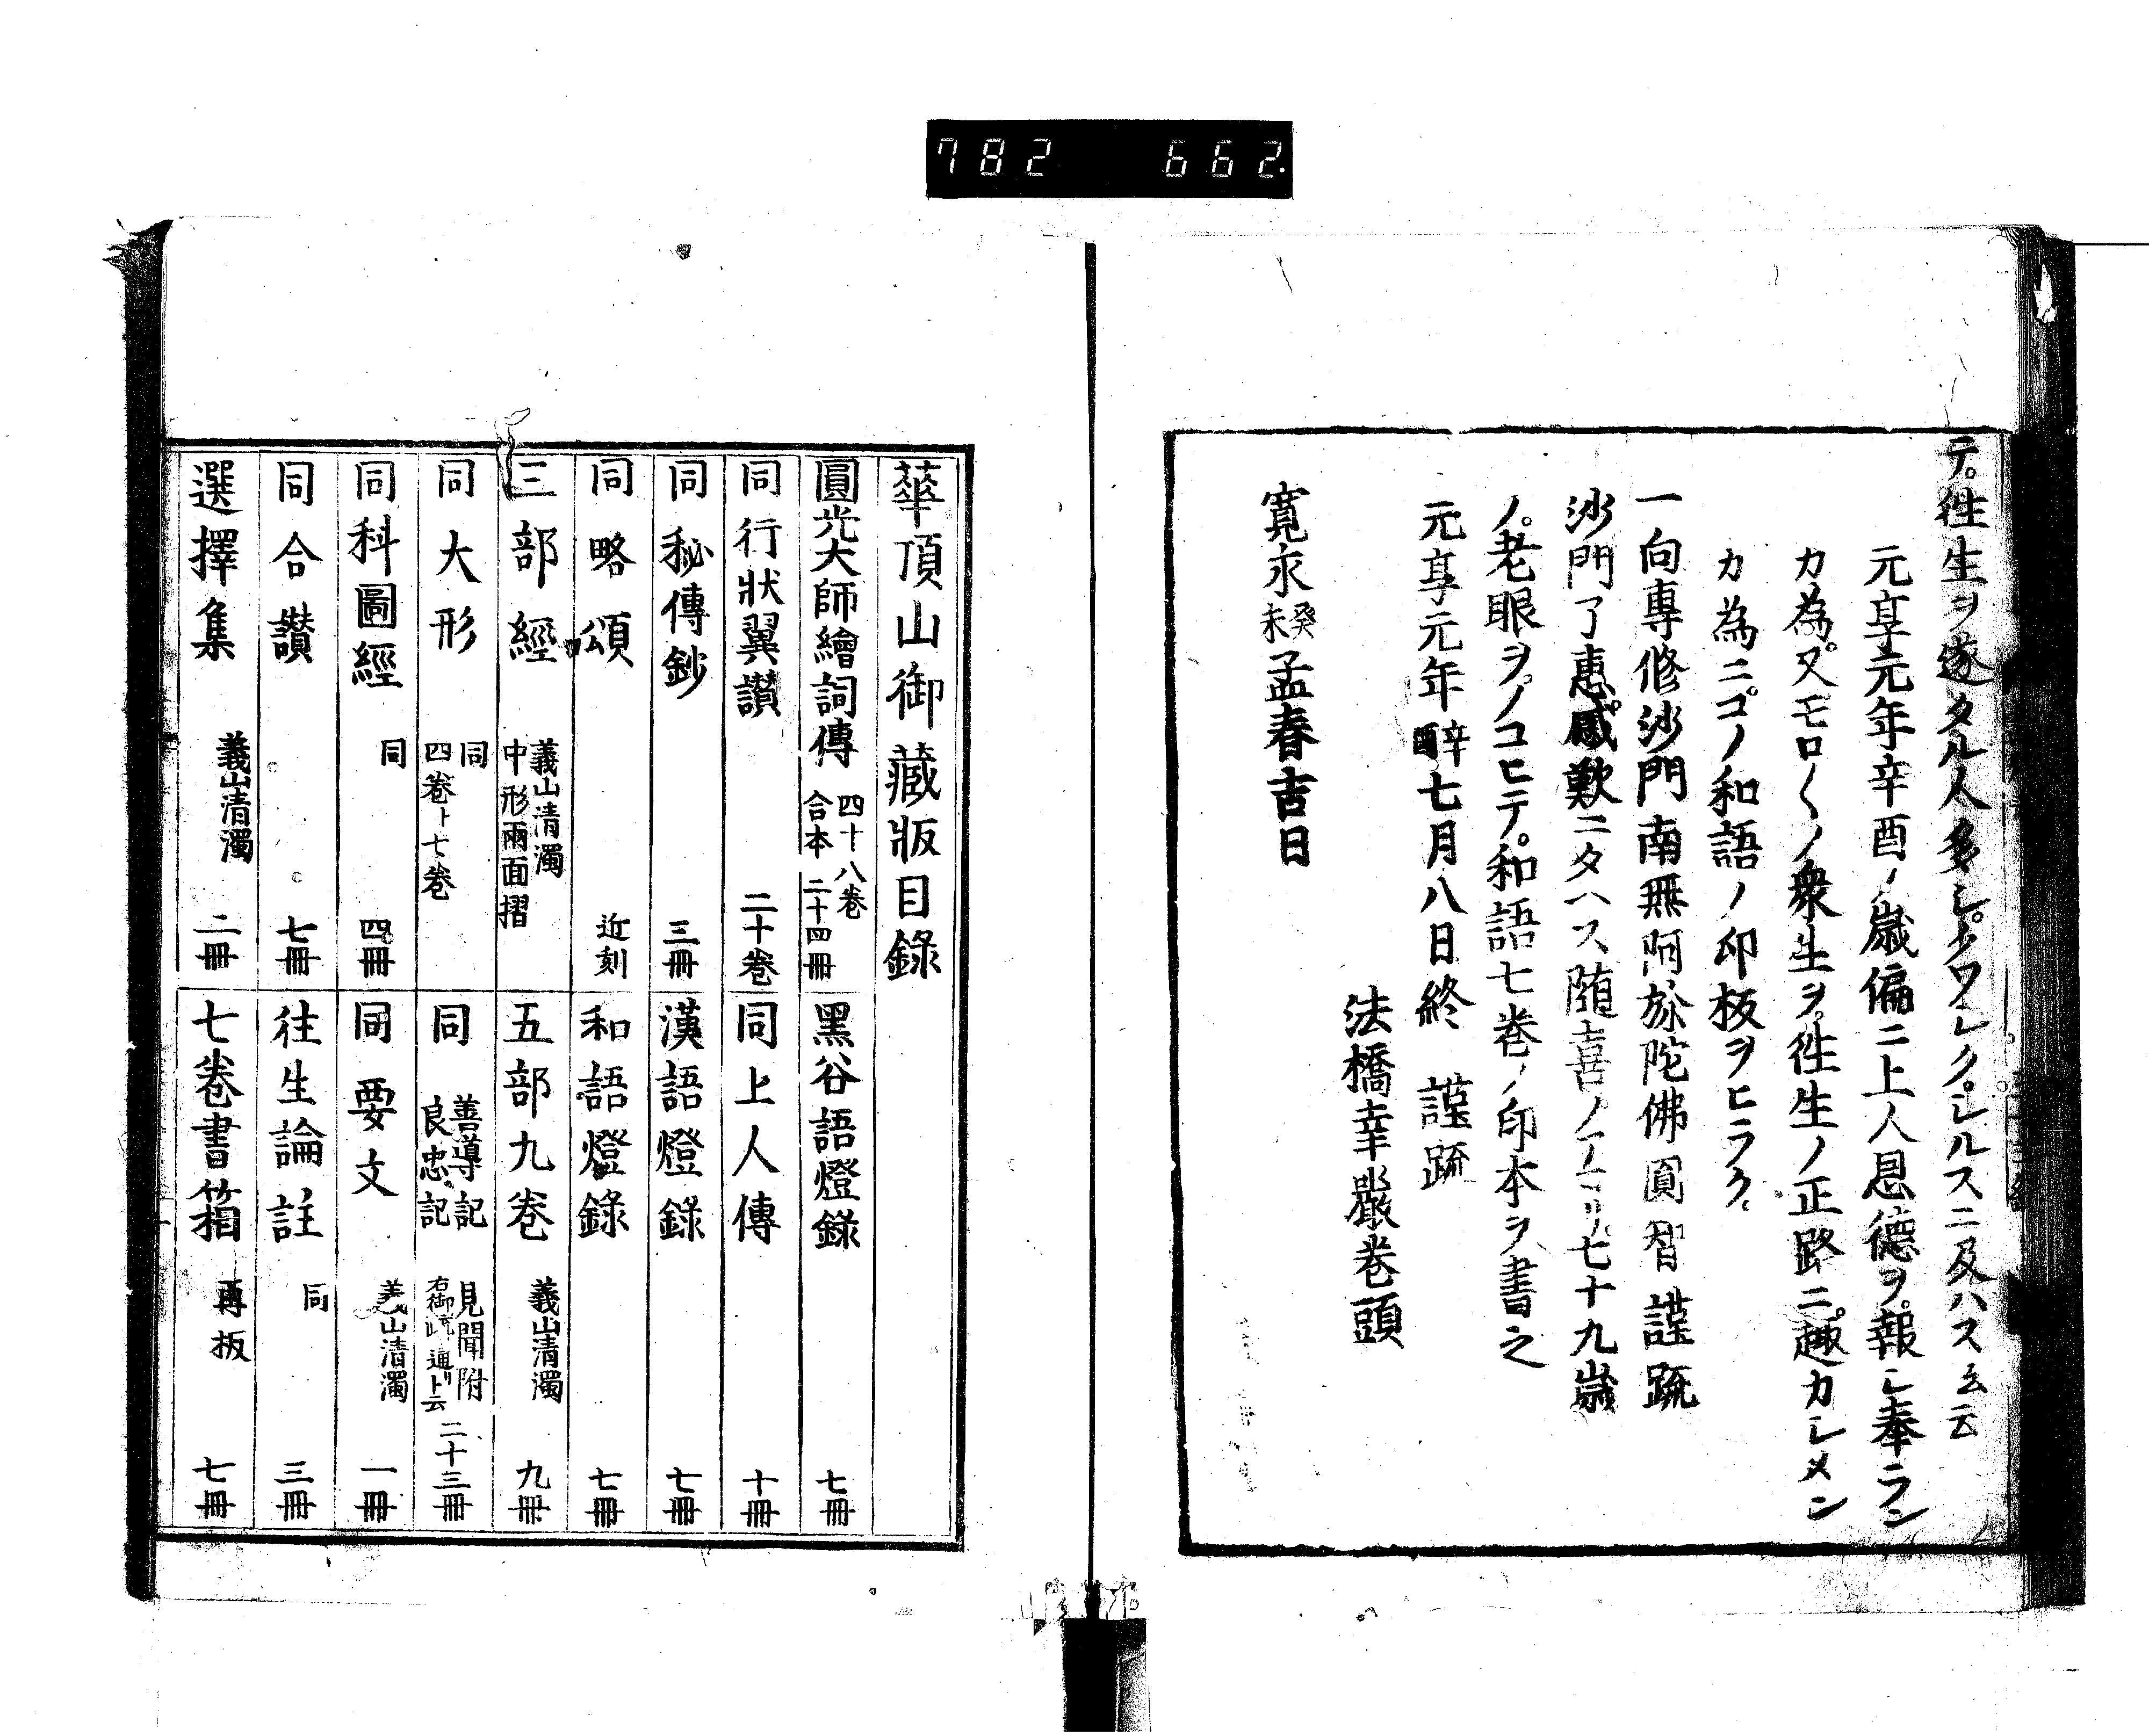 782 662.
テ。往生ヲ遂タル人多シ。クワシク。シルスニ及ハス云云
元亨元年辛酉ノ歳偏ニ上人恩德ヲ。報シ奉ラン
カ為。又モロ〱ノ衆生ヲ。往生ノ正路ニ。趣カシメン
カ為ニ。コノ和語ノ印板ヲヒラク。
一向專修沙門南無阿弥陀佛圓智謹疏
沙門了惠。感歎ニタヘス随喜ノアマリ。七十九歳
ノ。老眼ヲ。ノコヒテ。和語七巻ノ印本ヲ書之
元亨元年辛酉七月八日終 謹疏
法橋幸嚴巻頭
寛永癸未孟春吉日
華頂山御藏版目錄
圓光大師繪詞傳 四十八巻 合本二十四冊
黑谷語燈錄 七冊
同行狀翼讃 二十巻
同上人傳 十冊
同秘傳鈔 三冊
漢語燈錄 七冊
同略頌 近刻
和語燈錄 七冊
三部經 義山清濁 中形兩面摺
五部九巻 義山清濁 九冊
同大形 同 四巻ト七巻
同 善導記 良忠記 見聞附 右御疏ノ通リト云 二十三冊
同科圖經 同 四冊
同要文 義山清濁 一冊
同合讃 七冊
往生論註 同 三冊
選擇集 義山清濁 二冊
七巻書箱 再板 七冊